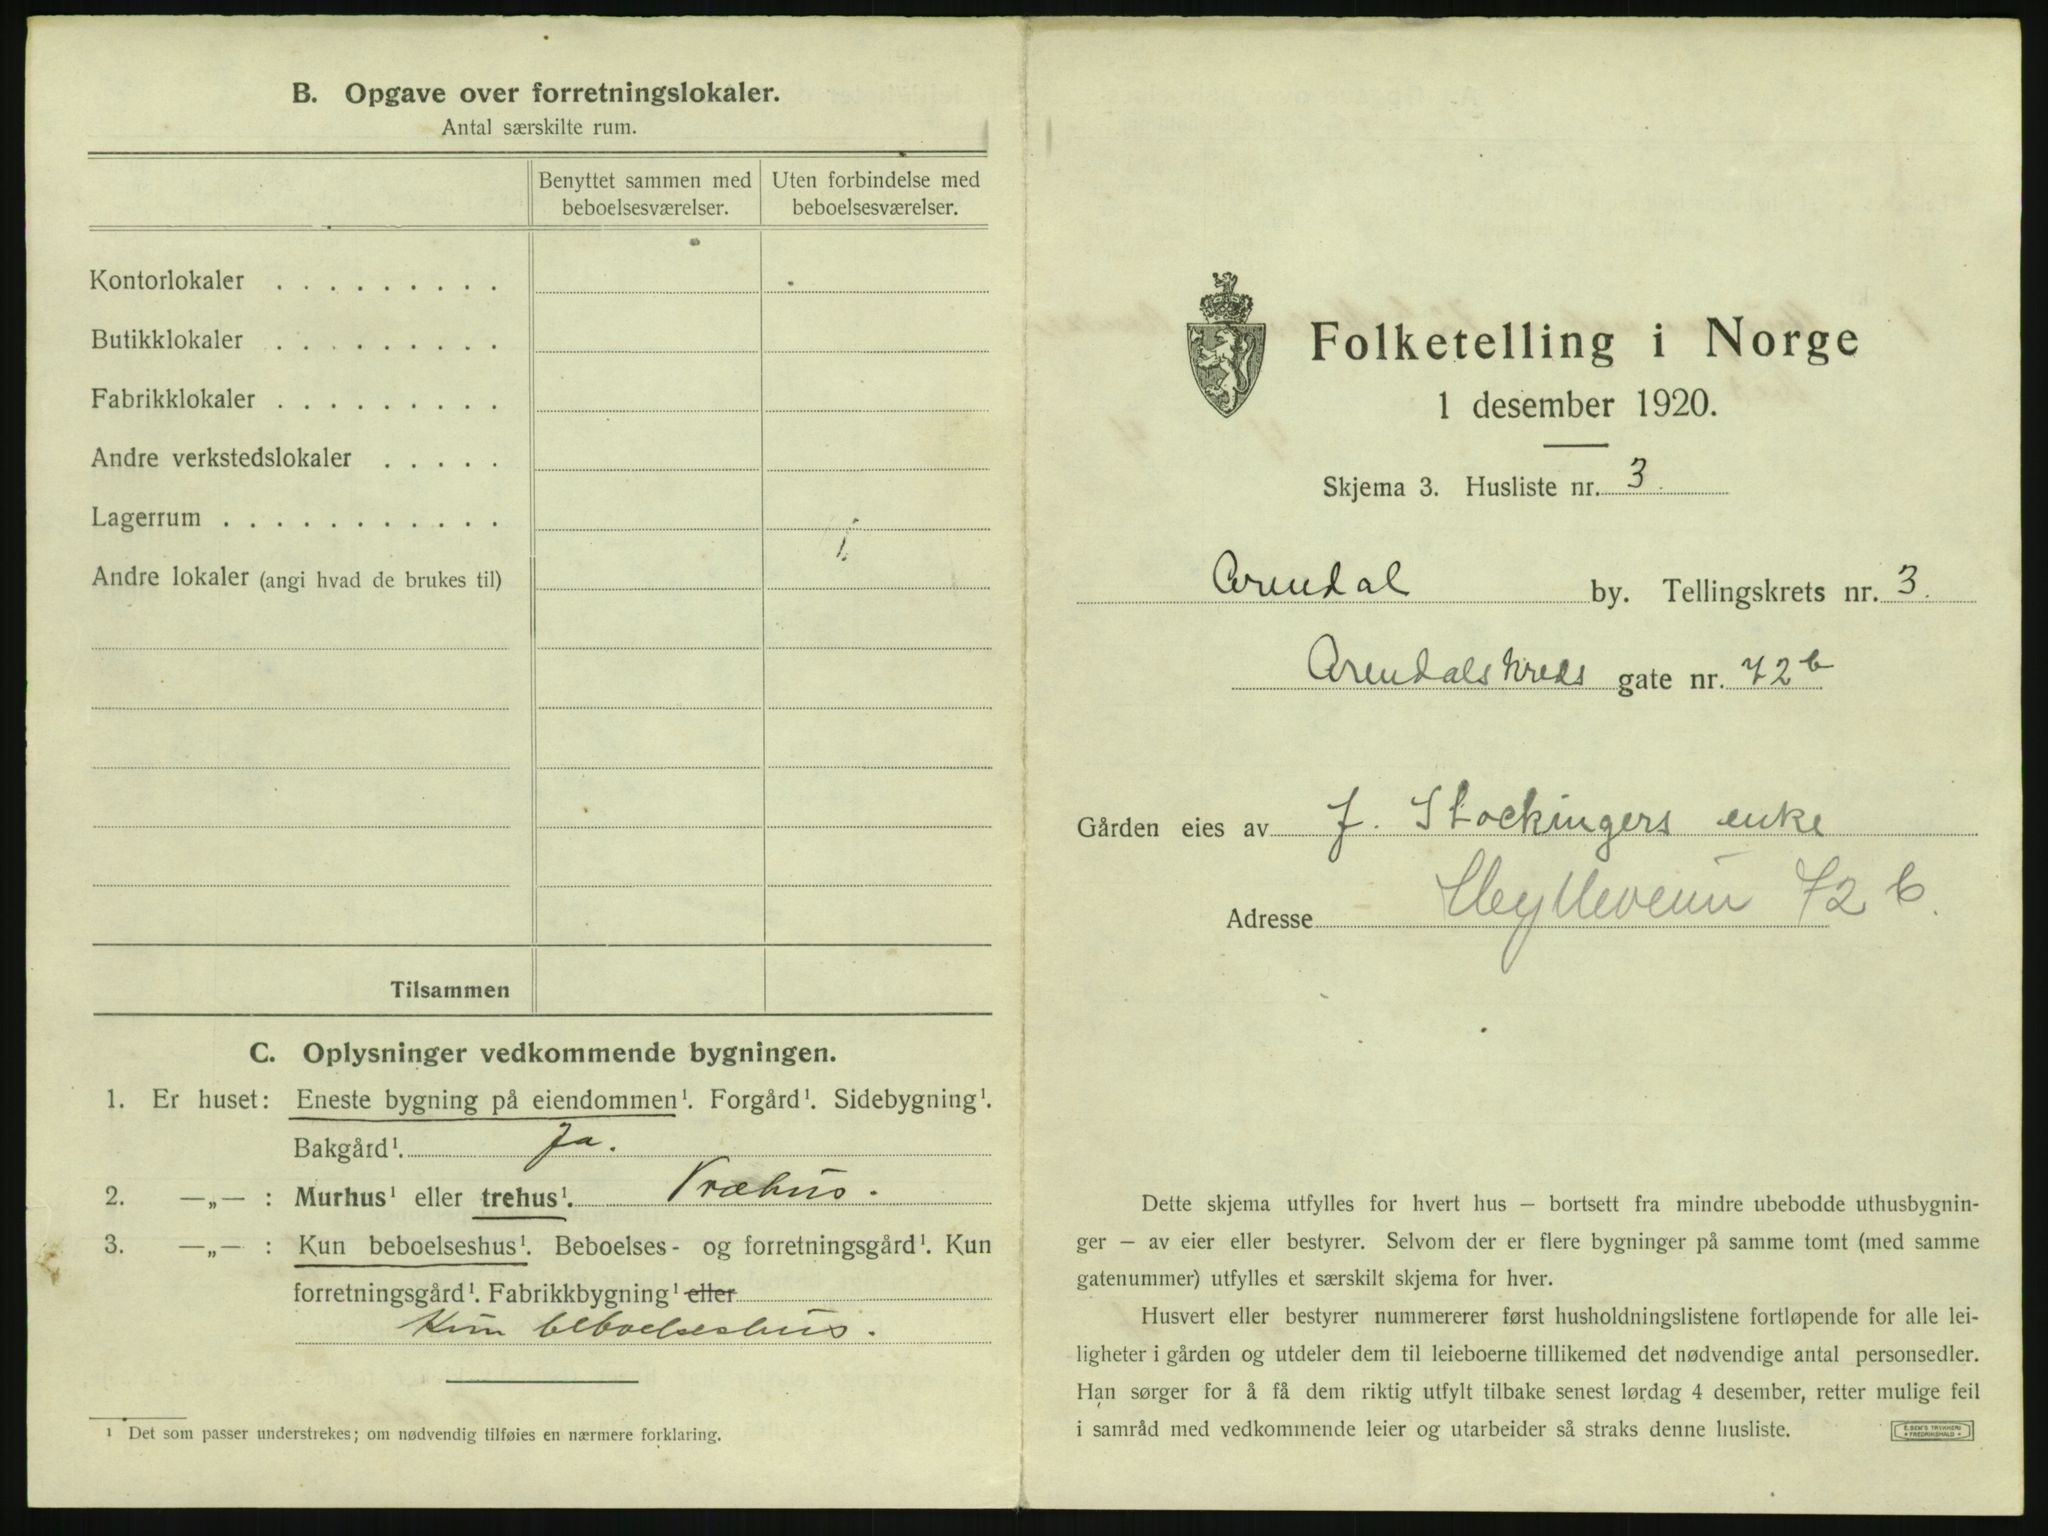 B. Opgave over forretningslokaler.
Antal særskilte rum.
Benyttet sammen med beboelsesværelser.
Uten forbindelse med beboelsesværelser.
Kontorlokaler . . . . . . . . .
Butikklokaler . . . . . . . . .
Fabrikklokaler . . . . . . . . .
Andre verkstedslokaler . . . . .
Lagerrum . . . . . . . . . . .
Andre lokaler (angi hvad de brukes til)
Tilsammen
C. Oplysninger vedkommende bygningen.
1. Er huset: Eneste bygning på eiendommen¹. Forgård¹. Sidebygning¹.
Bakgård¹. Ja.
2. —„— : Murhus¹ eller trehus¹. Træhus.
3. —„— : Kun beboelseshus¹. Beboelses- og forretningsgård¹. Kun
forretningsgård¹. Fabrikkbygning¹ eller
Kun beboelseshus.
¹ Det som passer understrekes; om nødvendig tilføies en nærmere forklaring.
Folketelling i Norge
1 desember 1920.
Skjema 3. Husliste nr. 3.
Arendal by. Tellingskrets nr. 3.
Arendals kreds gate nr. 72b
Gården eies av J. Stockingers enke
Adresse 72 b.
Dette skjema utfylles for hvert hus – bortsett fra mindre ubebodde uthusbygnin-
ger – av eier eller bestyrer. Selvom der er flere bygninger på samme tomt (med samme
gatenummer) utfylles et særskilt skjema for hver.
Husvert eller bestyrer nummererer først husholdningslistene fortløpende for alle lei-
ligheter i gården og utdeler dem til leieboerne tillikemed det nødvendige antal personsedler.
Han sørger for å få dem riktig utfylt tilbake senest lørdag 4 desember, retter mulige feil
i samråd med vedkommende leier og utarbeider så straks denne husliste.
E. SEM'S TRYKKERI
FREDRIKSHALD